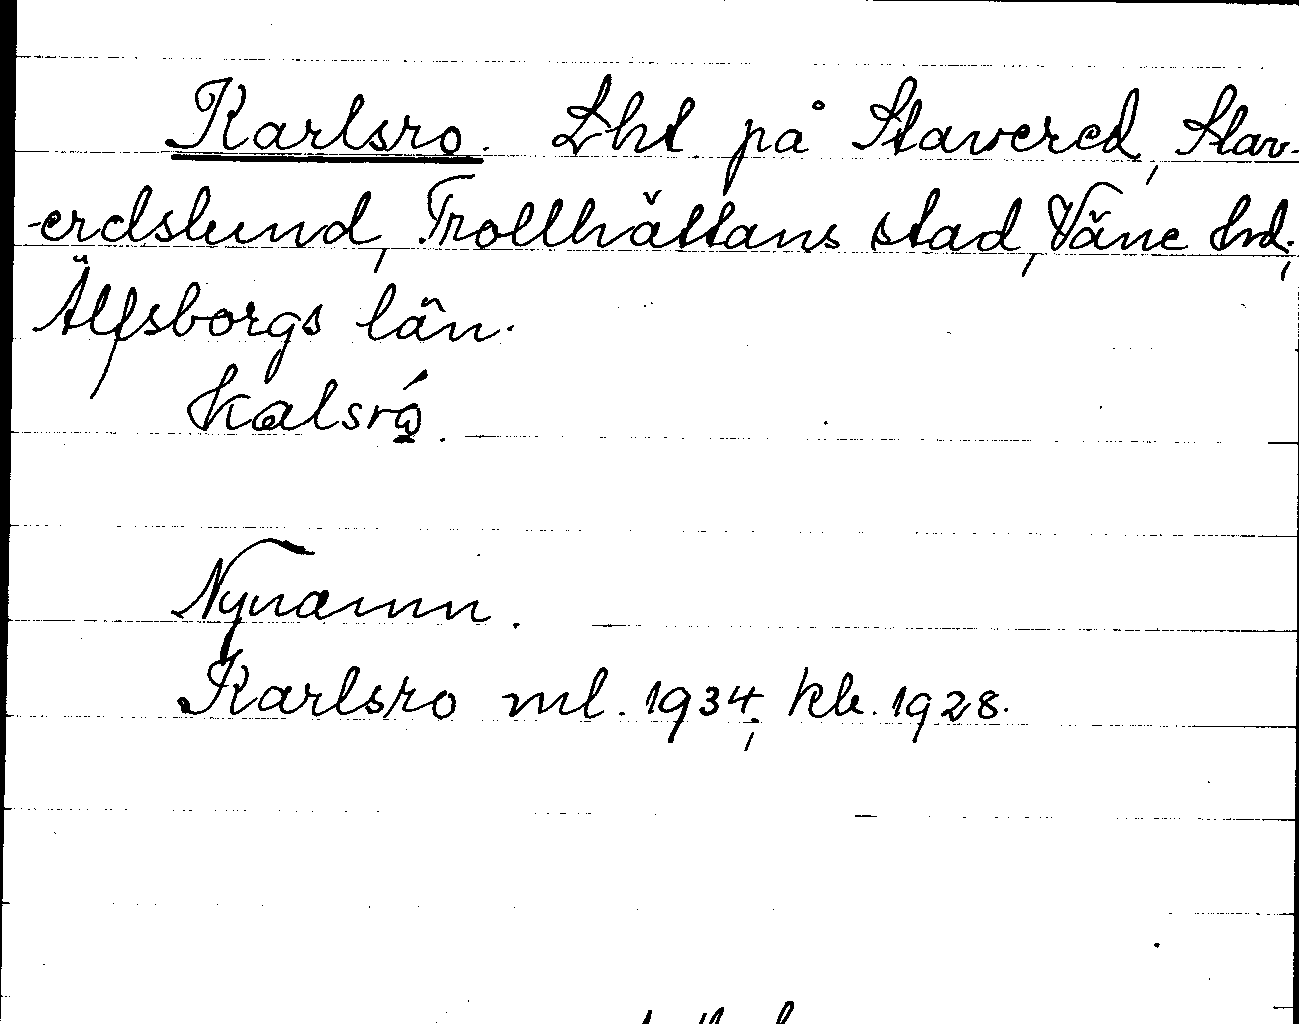 Karlsro. Lht på Stavered, Stav-
-erdslund, Trollhättans stad, Väne hd;
Älfsborgs län.
kalsró̤.
Nynamn.
Karlsro ml. 1934; kb. 1928.